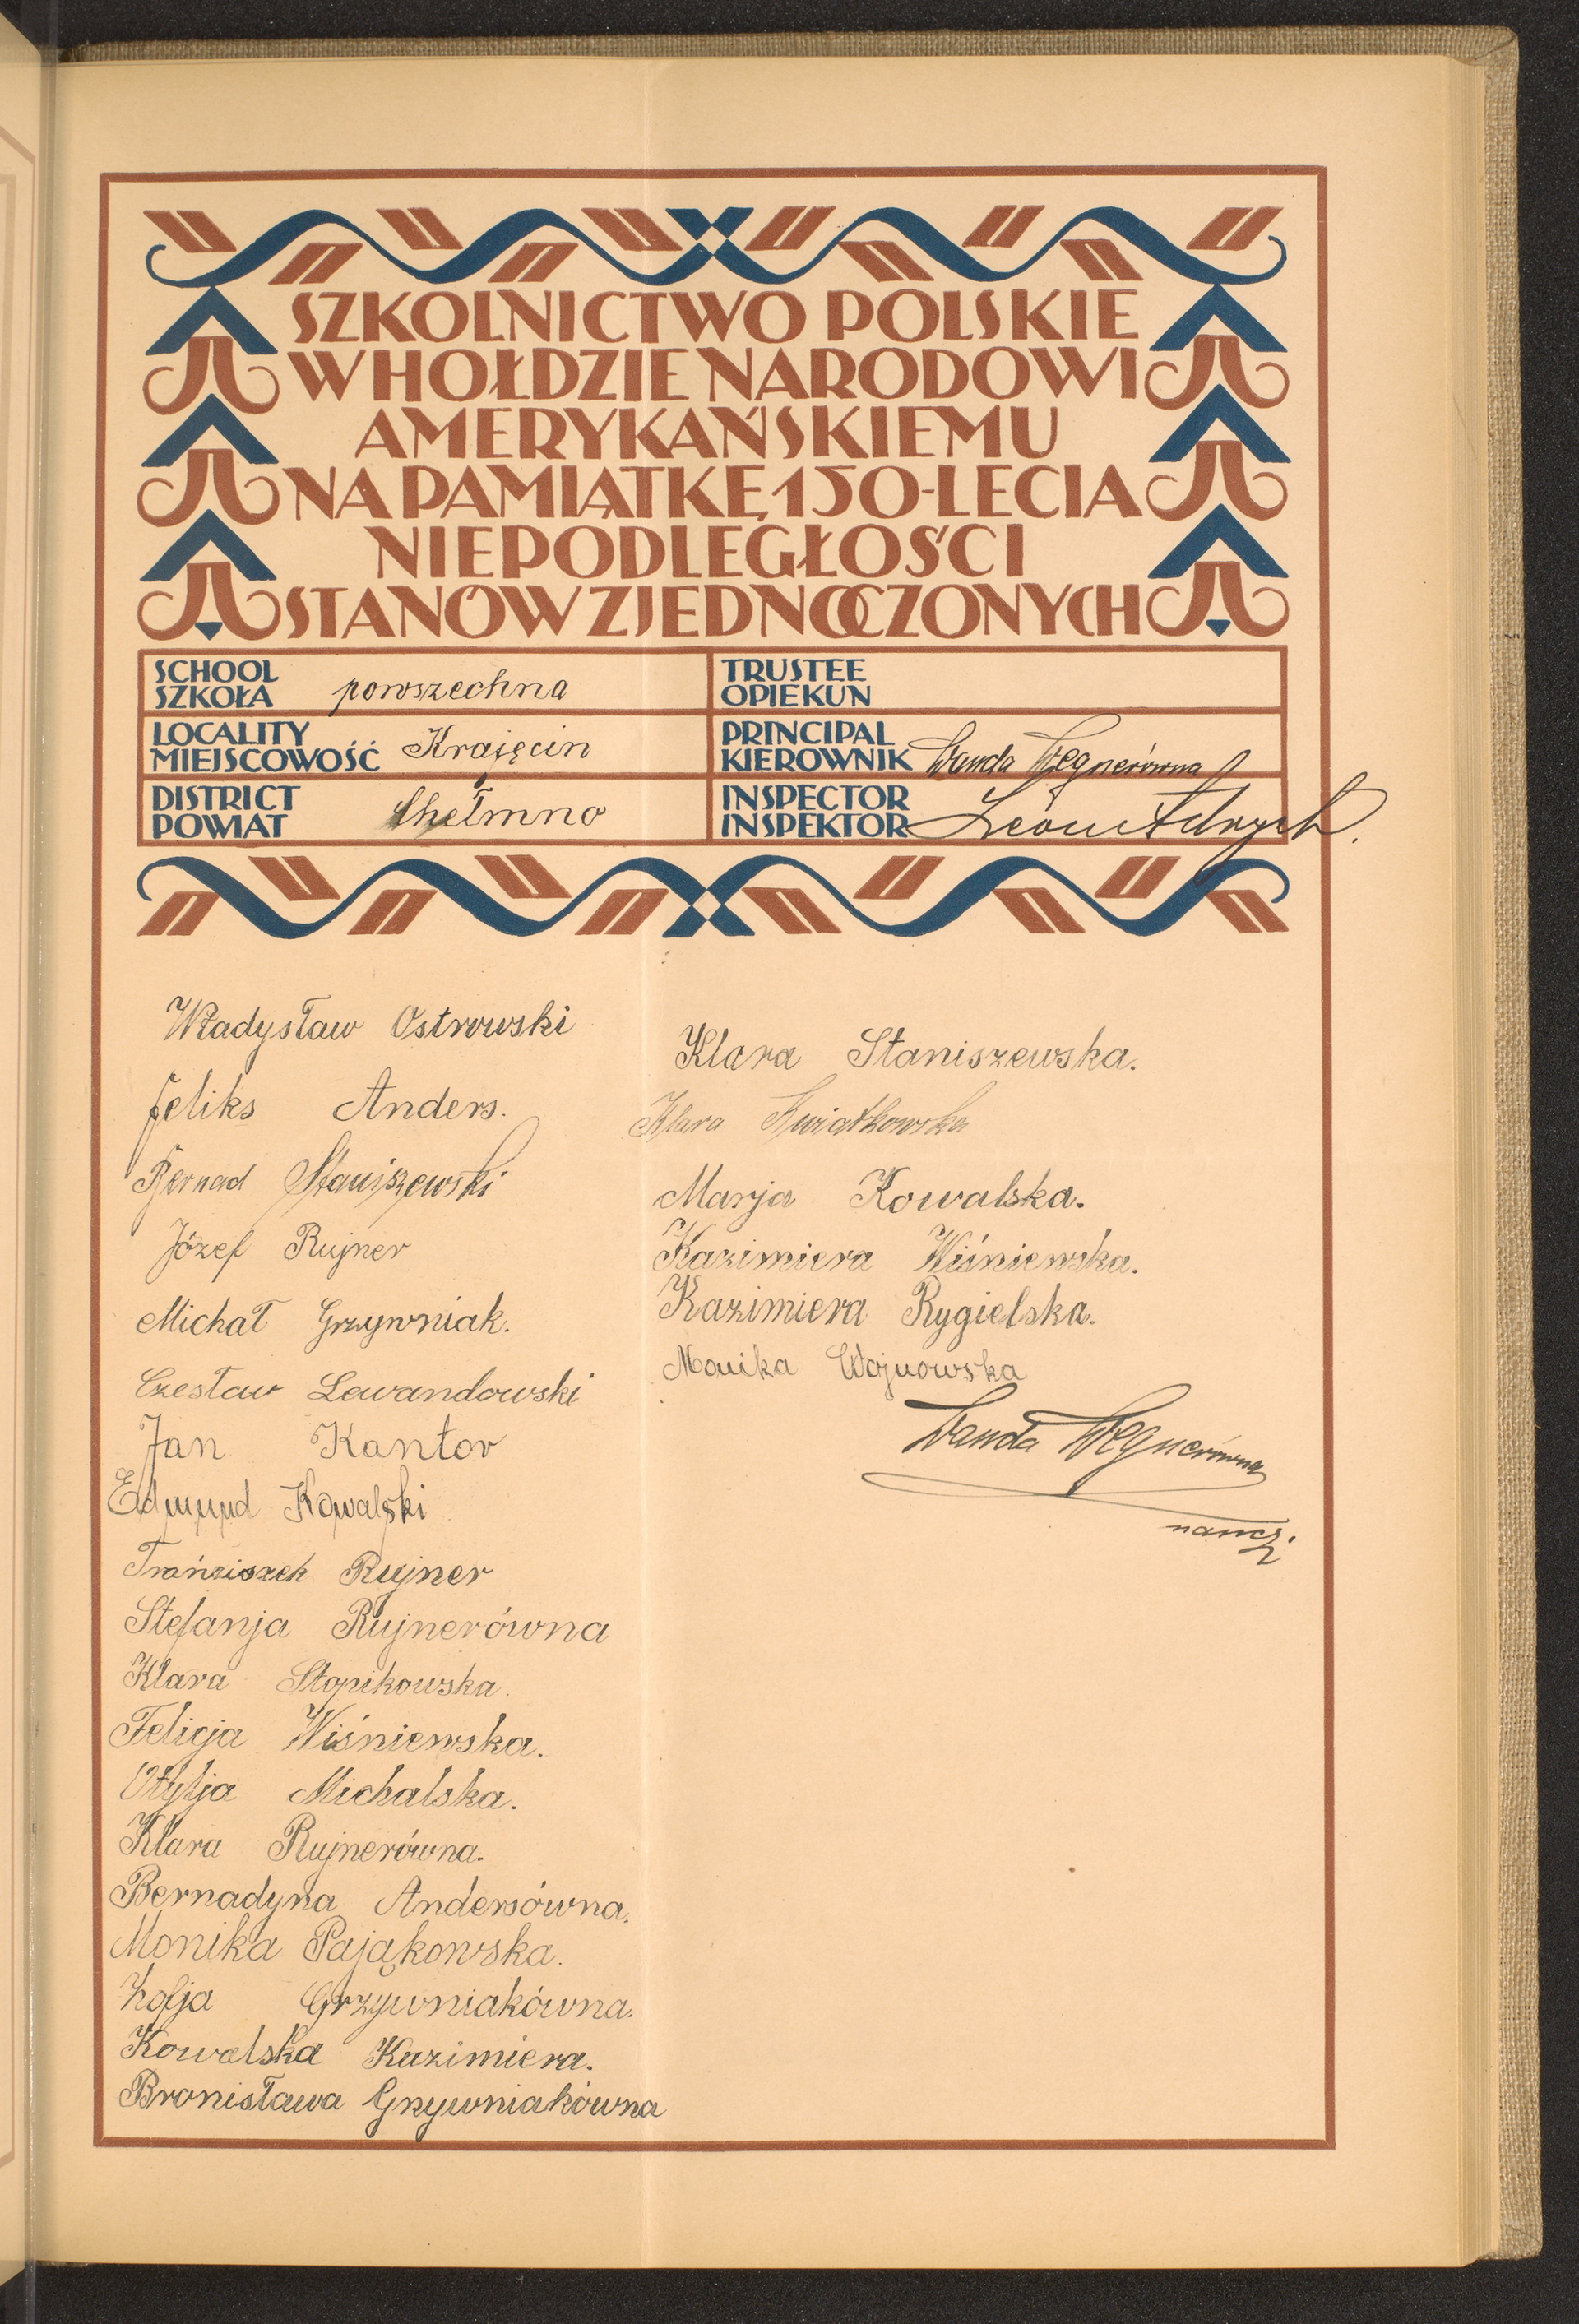 SZKOLNICTWO POLSKIE
W HOŁDZIE NARODOWI
AMERYKAŃSKIEMU
NA PAMIĄTKĘ 150-LECIA
NIEPODLEGŁOŚCI
STANÓW ZJEDNOCZONYCH
SCHOOL
SZKOŁA powszechna
TRUSTEE
OPIEKUN
LOCALITY
MIEJSCOWOŚĆ Krajęcin
PRINCIPAL
KIEROWNIK Wanda Wegnerówna
DISTRICT
POWIAT Chełmno
INSPECTOR
INSPEKTOR Leon
Władysław Ostrowski
Feliks Anders.
Bernad Staniszewski
Józef Rujner
Michał Grzywniak.
Czesław Lewandowski
Jan Kantor
Edmund Kowalski
Franciszek Rujner
Stefanja Rujnerówna
Klara Stopikowska.
Felicja Wiśniewska.
Otylja Michalska.
Klara Rujnerówna.
Bernadyna Andersówna.
Monika Pająkowska.
Zofja Grzywniakówna.
Kowalska Kazimiera.
Bronisława Grzywniakówna
Klara Staniszewska.
Klara Kwiatkowska
Marja Kowalska.
Kazimiera Wiśniewska.
Kazimiera Rygielska.
Monika Wojnowska
Wanda Wegnerówna
naucz.